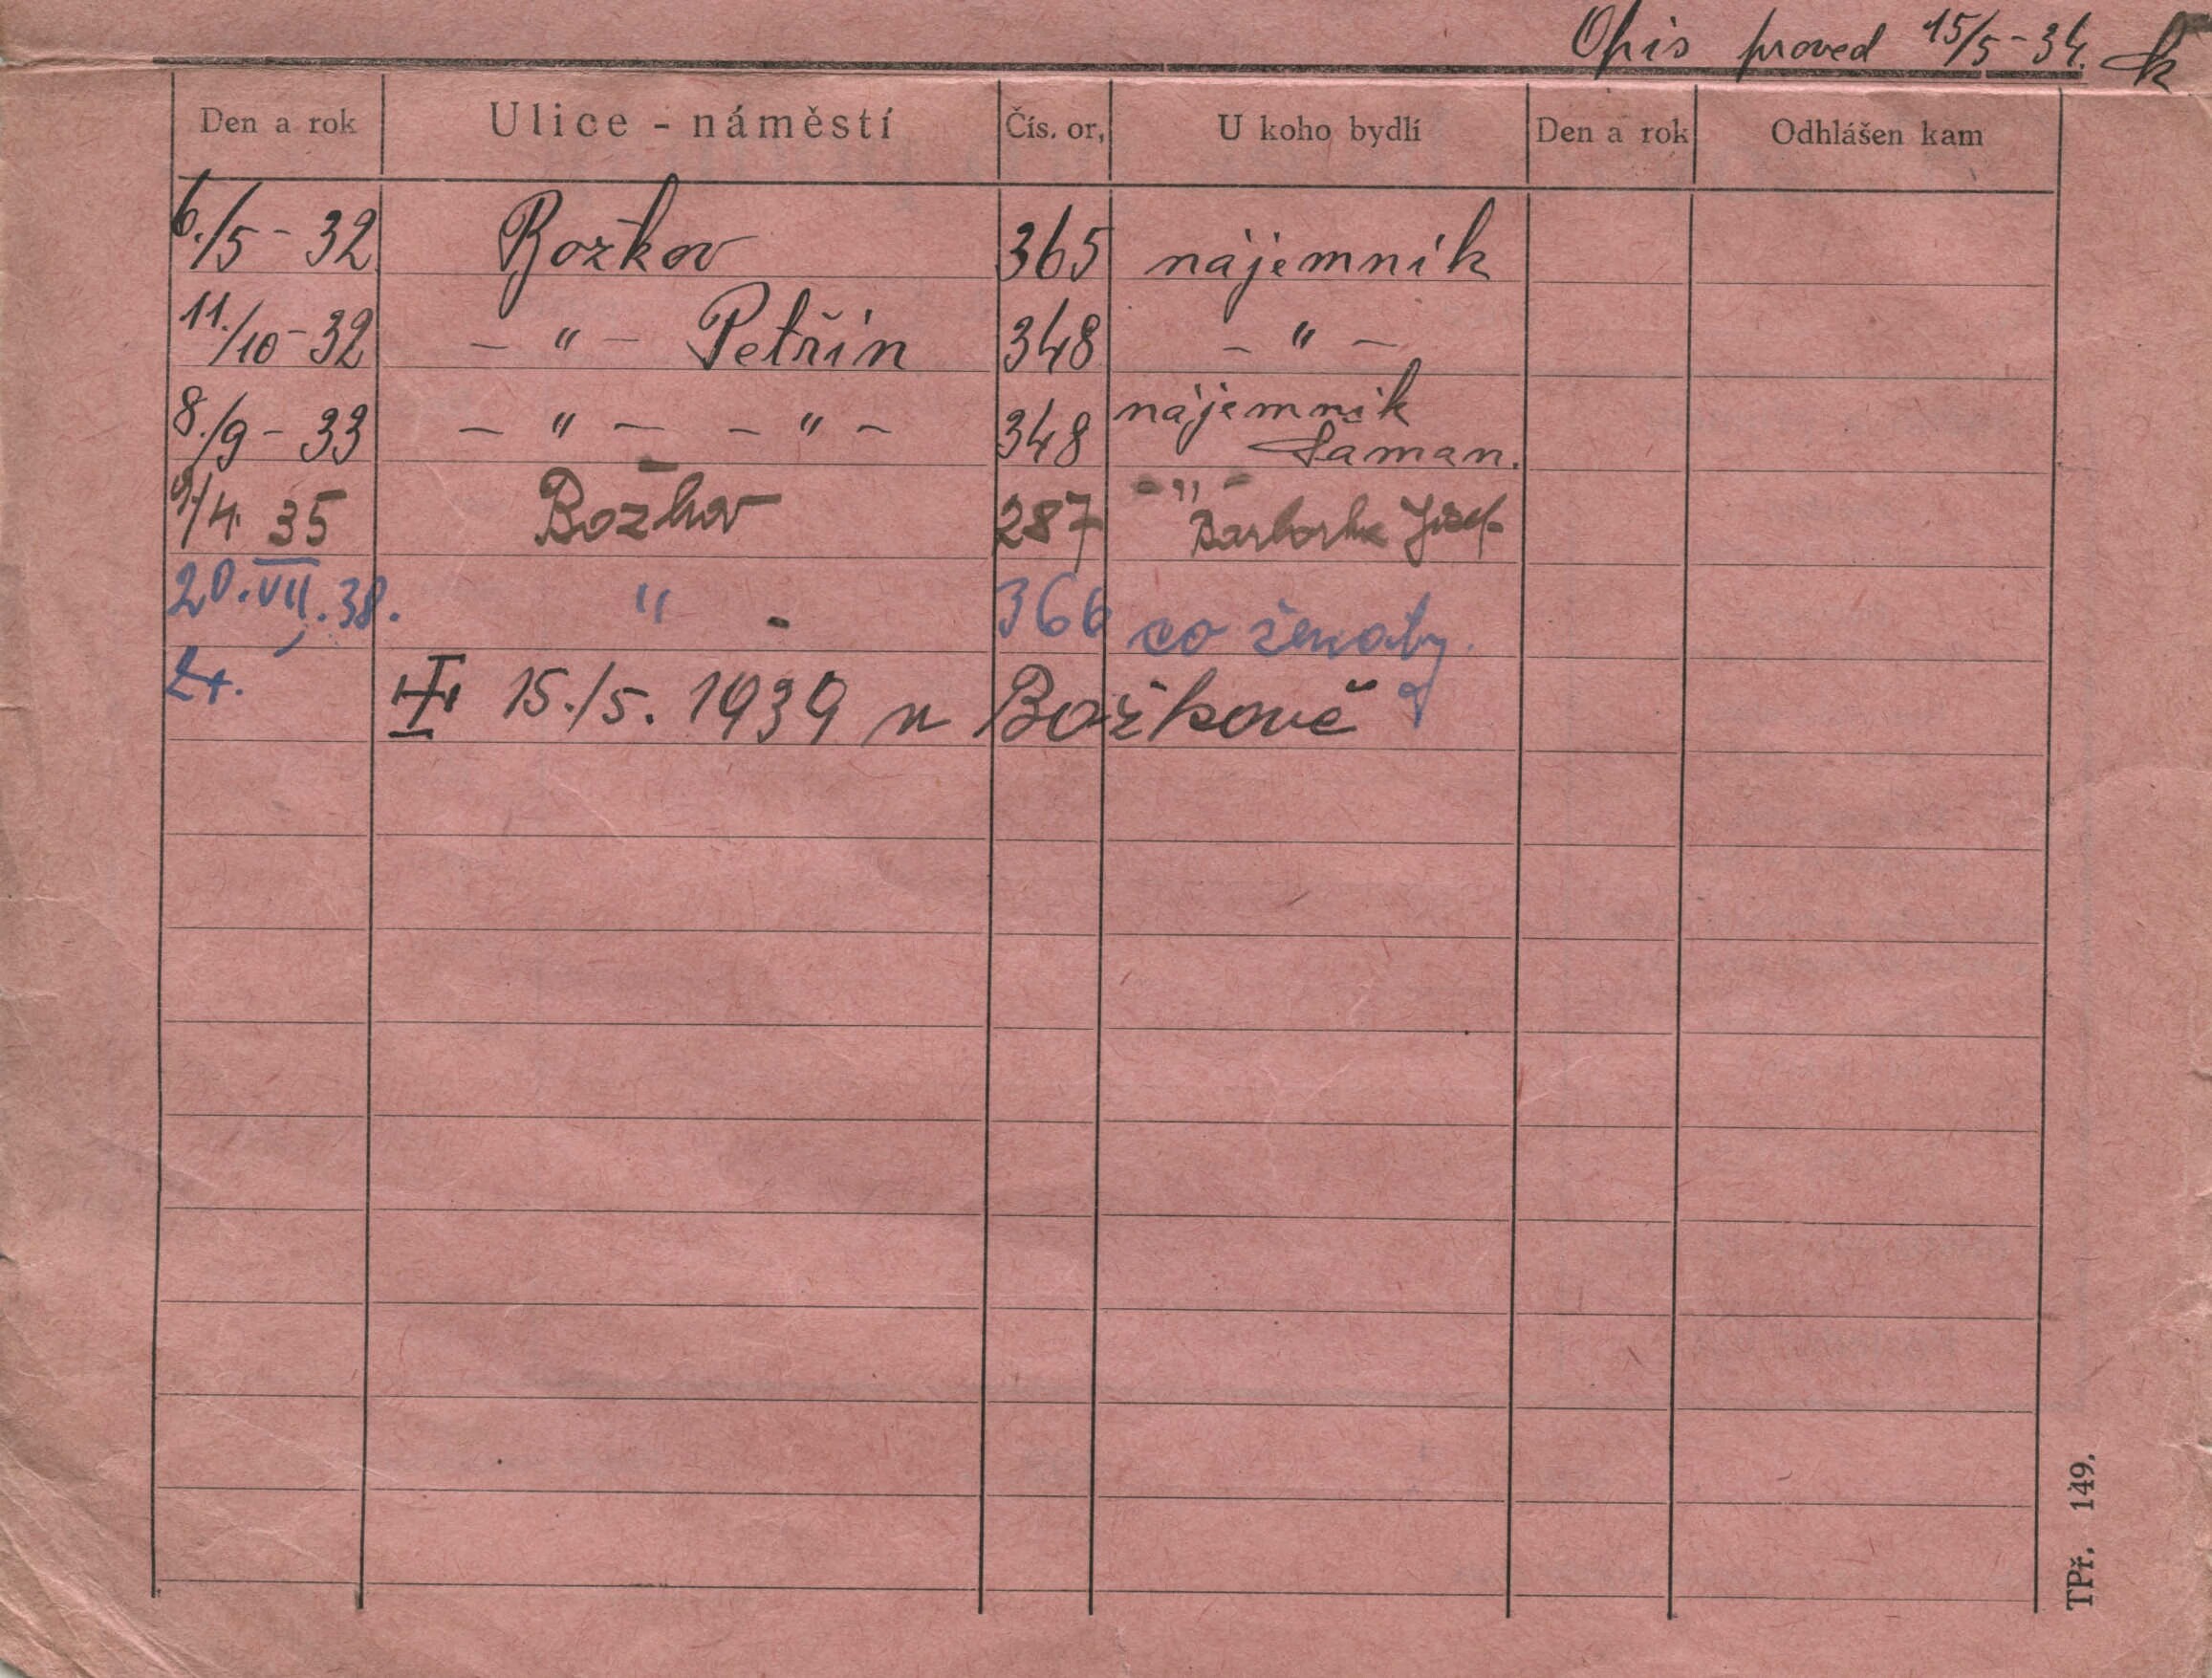 Opis proved 15/5-34.
Den a rok Ulice - náměstí Čís. or, U koho bydlí Den a rok Odhlášen kam
6./5 - 32 Božkov 365 nájemník
11./10 - 32 - " - Petřín 348 - " -
8./9 - 33 - " - - " - 348 nájemník
Šaman.
9/4. 35 Božkov 287 - " -
Josef
20.VII.38. " 366 co
15./5. 1939 v Božkově
TPř. 149.